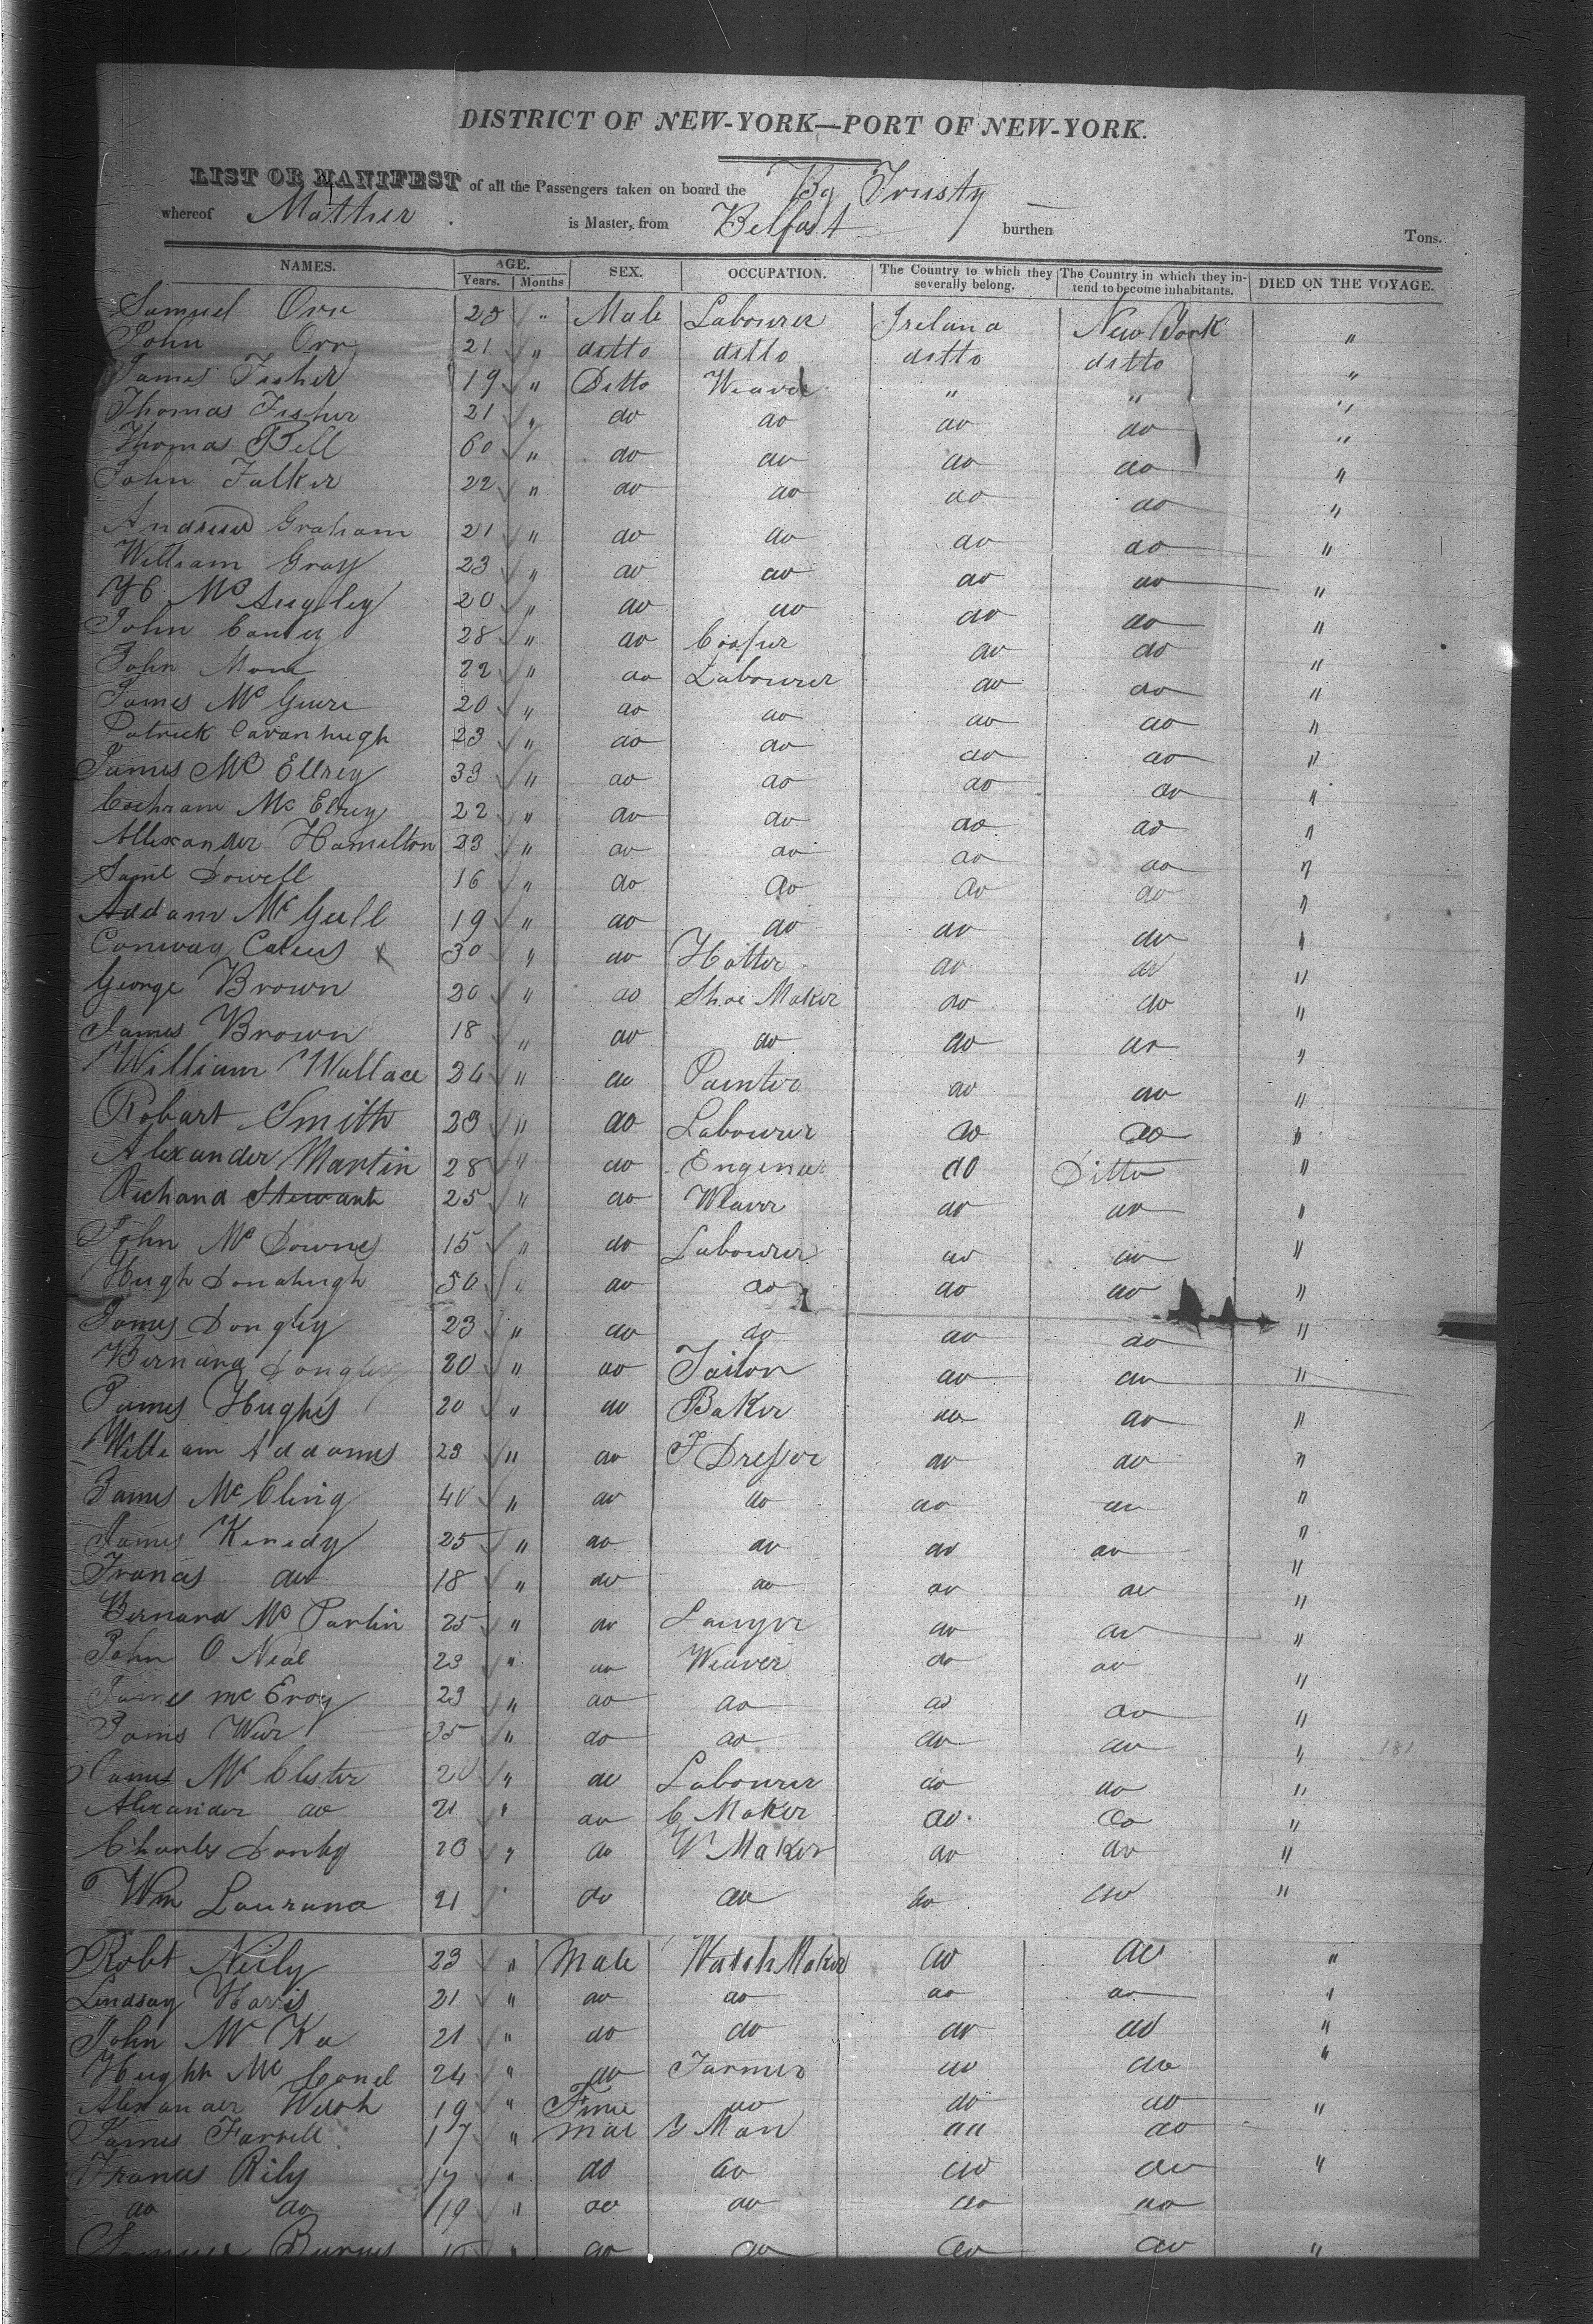 DISTRICT OF NEW-YORK—PORT OF NEW-YORK.
LIST OR MANIFEST of all the Passengers taken on board the Bg Trusty
whereof Mather is Master, from Belfast burthen Tons.
NAMES. AGE. Years. Months SEX. OCCUPATION. The Country to which they severally belong. The Country in which they intend to become inhabitants. DIED ON THE VOYAGE.
Samuel Orr 25 " Male Labourer Ireland New York "
John Orr 21 " ditto ditto ditto ditto "
James Fisher 19 " Ditto Weaver " " "
Thomas Fisher 21 " do do do do "
Thomas Bell 60 " do do do do "
John Falker 22 " do do do do "
Andrew Graham 21 " do do do do "
William Gray 23 " do do do do "
Mc Augley 20 " do do do do "
John 28 " do Cooper do do "
John 22 " do Labourer do do "
James Mc Guire 20 " do do do do "
Patrick Cavanhugh 23 " do do do do "
James Mc Ellrey 33 " do do do do "
Cochram Mc Elrey 22 " do do do do "
Allexander Hamilton 23 " do do do do "
Saml Dowell 16 " do do do do "
Addam Mc Gull 19 " do do do do "
Conway x 30 " do Hatter do do "
George Brown 20 " do Shoe Maker do do "
James Brown 18 " do do do do "
William Wallace 24 " do Painter do do "
Robart Smith 23 " do Labourer do do "
Alexander Martin 28 " do Enginer do Ditto "
Richard Stewart 25 " do Weaver do do "
John Mc Downey 15 " do Labourer do do "
Hugh Donahugh 50 " do do do do "
James Dongley 23 " do do do do "
Bernard Dongley 20 " do Tailor do do "
James Hughes 20 " do Baker do do "
William Addams 23 " do F Dresser do do "
James Mc Cling 40 " do do do do "
James Kenedy 25 " do do do do "
Francis do 18 " do do do do "
Bernard Mc Parlin 25 " do do do "
John O Neal 23 " do Weaver do do "
James mc Evoy 23 " do do do do "
James Weir 35 " do do do do "
181
James Mc Clester 20 " do Labourer do do "
Alexander do 21 " do C Maker do do "
Charles Donley 20 " do W Maker do do "
Wm Laurance 21 " do do do do "
Robt Neily 23 " Male Watch Maker do do "
Lindsay Harris 21 " do do do do "
John Mc Ka 21 " do do do do "
Hughh Mc Conel 24 " do Farmer do do "
Alexander Welsh 19 " do do do "
James Farrell 17 " Male S Man do do
Francis Rily 17 " do do do do "
do do 19 " do do do do
Burns " do do do do "